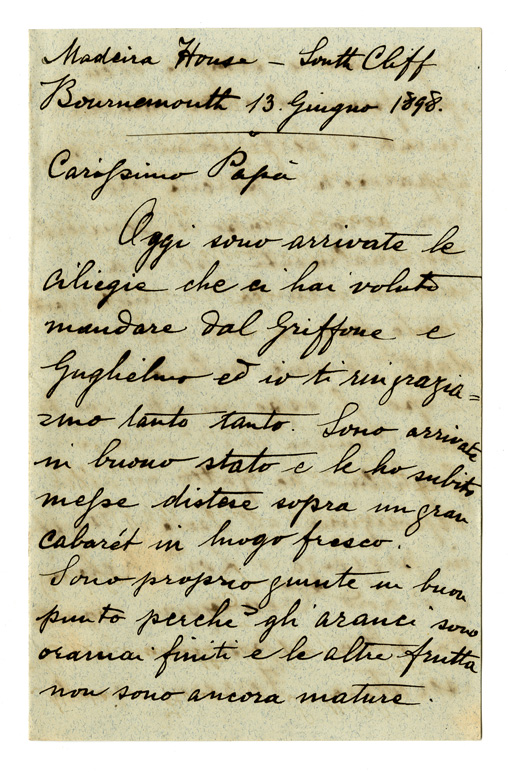 Madeira House – South Cliff
Bournemouth 13. Giugno 1898.
Carissimo Papà
Oggi sono arrivate le
ciliegie che ci hai voluto
mandare dal Griffone e
Guglielmo ed io ti ringrazia=
=mo tanto tanto. Sono arrivate
in buono stato e le ho subito
messe distese sopra un gran
cabarét in luogo fresco.
Sono proprio giunte in buon
punto perchè gli aranci sono
oramai finiti e le altre frutta
non sono ancora mature.